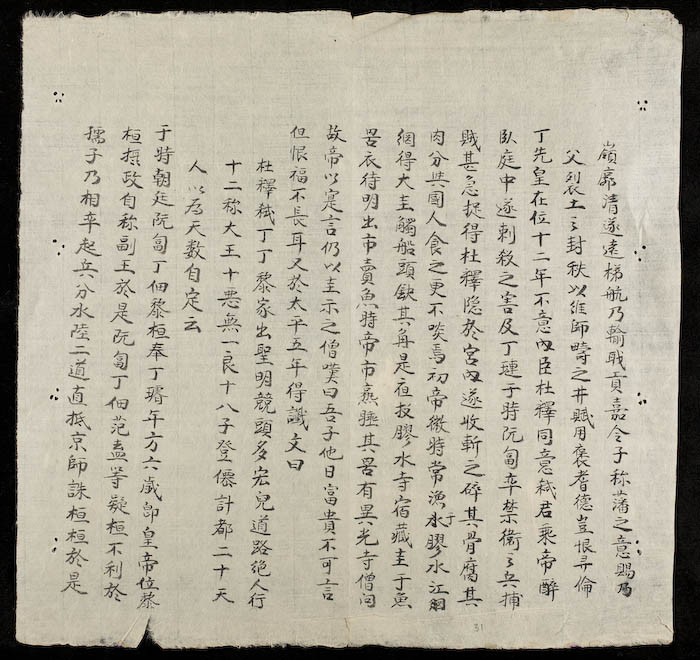 嶺廓清遂遠梯航乃輸職貢嘉令子称藩之意賜乃
父裂土之封秩以維師疇之井賦用褒耆德豈恨彛倫
丁先皇在位十二年不意內臣杜釋同意弒君乘帝醉
臥庭中遂刺殺之害及丁璉于時阮匐率禁衛之兵捕
賊甚急捉得杜釋隐於宮內遂收斬之碎其骨腐其
肉分與國人食之更不啖焉初帝微時常漁于水膠水江網
網得大圭觸船頭缺其角是夜投膠水寺宿藏圭于魚
罟底待明出市賣魚時帝市熏腄其罟有異光寺僧问
故帝以寔言仍以圭示之僧嘆曰吾子他日富貴不可言
但恨福不長耳又於太平五年得讖文曰
杜釋弒丁丁黎家出聖明競頭多宏兒道路绝人行
十二称大王十恶無一良十八子登僊計都二十天
人以為天数自定云
于時朝廷阮匐丁佃黎桓奉丁璿年方六歲即皇帝位黎
桓摂政自称副王於是阮匐丁佃范盍等疑桓不利於
孺子乃相率起兵分水陸二道直抵京師誅桓桓於是